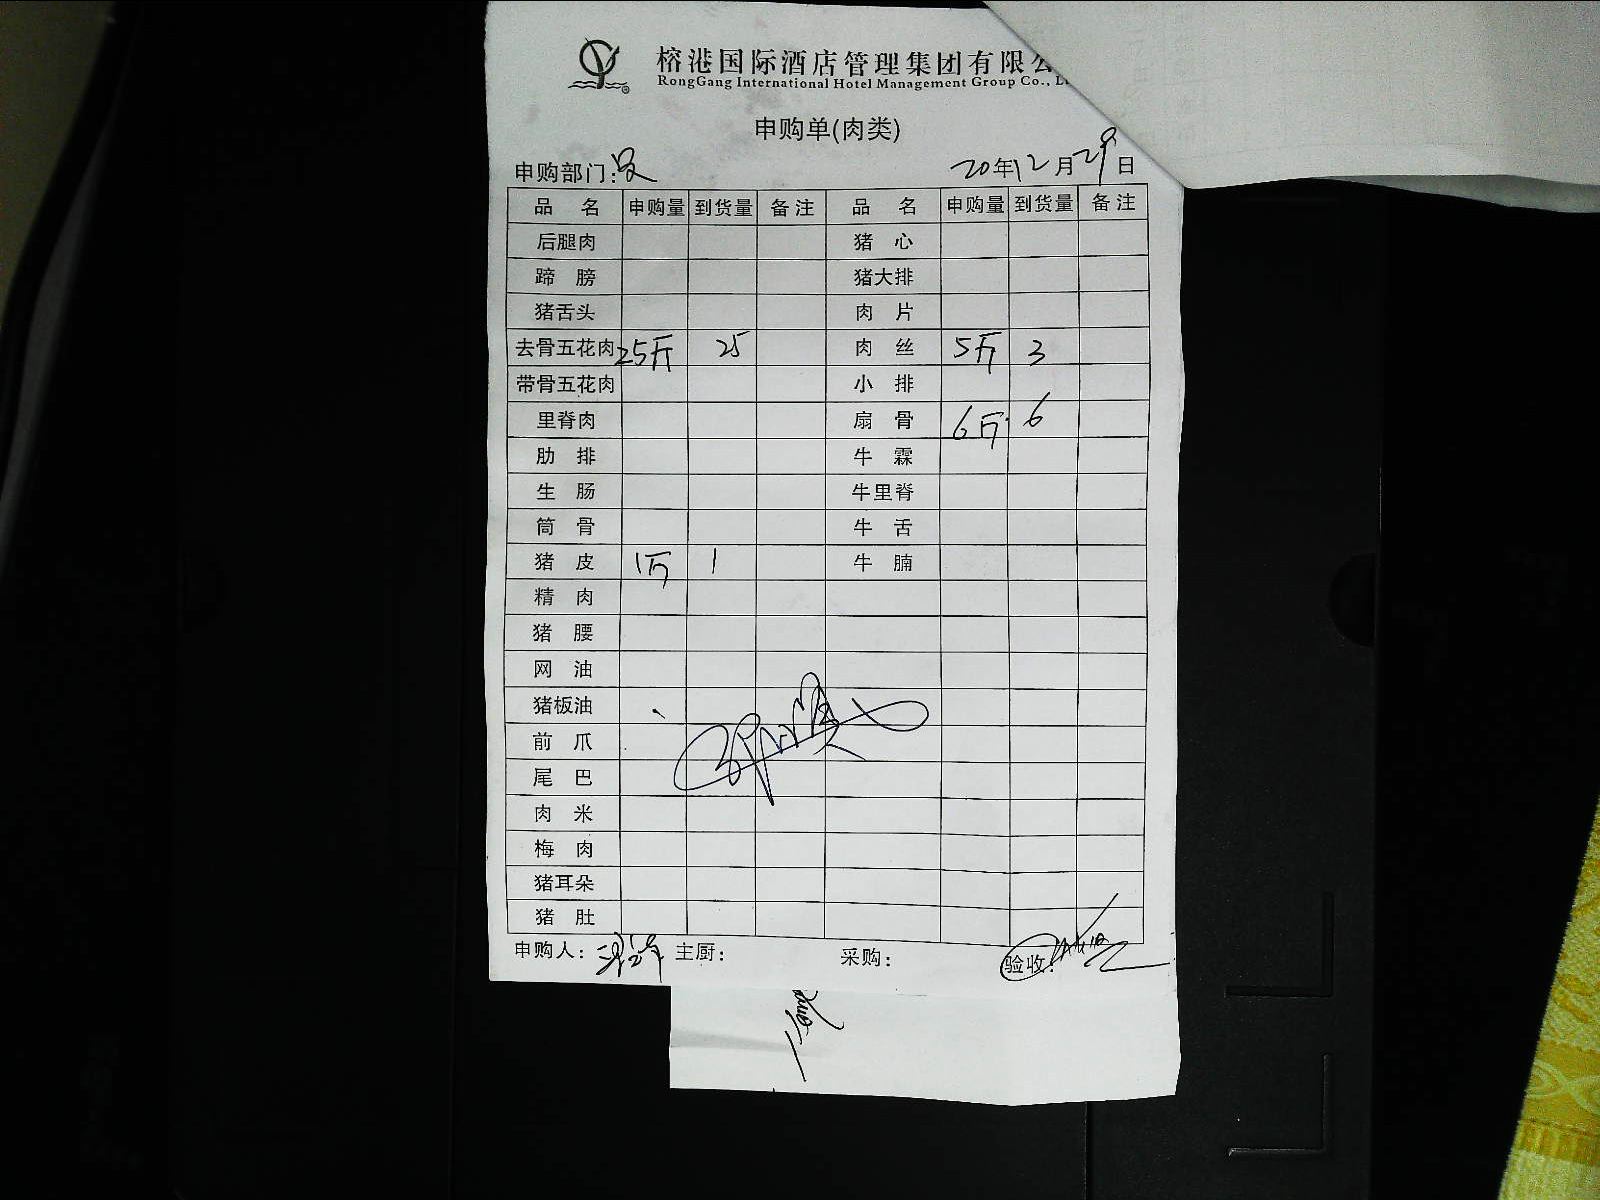 榕港国际酒店管理集团有限公
RongGang International Hotel Management Group Co., L
申购单(肉类)
申购部门: 20年12月29日
品名 申购量 到货量 备注 品名 申购量 到货量 备注
后腿肉 猪心
蹄膀 猪大排
猪舌头 肉片
去骨五花肉 25斤 25 肉丝 5斤 3
带骨五花肉 小排
里脊肉 扇骨 6斤 6
肋排 牛霖
生肠 牛里脊
筒骨 牛舌
猪皮 1斤 1 牛腩
精肉
猪腰
网油
猪板油
前爪
尾巴
肉米
梅肉
猪耳朵
猪肚
申购人: 主厨: 采购: 验收: